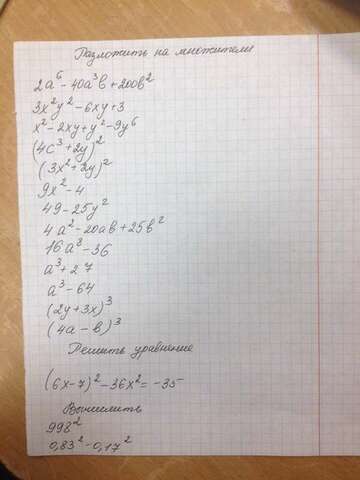 Разложить на множители
2a⁶ - 40a³b + 200b²
3x²y² - 6xy + 3
x² - 2xy + y² - 9y⁶
(4c³ + 2y)²
(3x² + 2y)²
9x² - 4
49 - 25y²
4a² - 20ab + 25b²
16a² - 36
a³ + 27
a³ - 64
(2y + 3x)³
(4a - b)³
Решить уравнение
(6x - 7)² - 36x² = -35
Вычислить
998²
0,83² - 0,17²